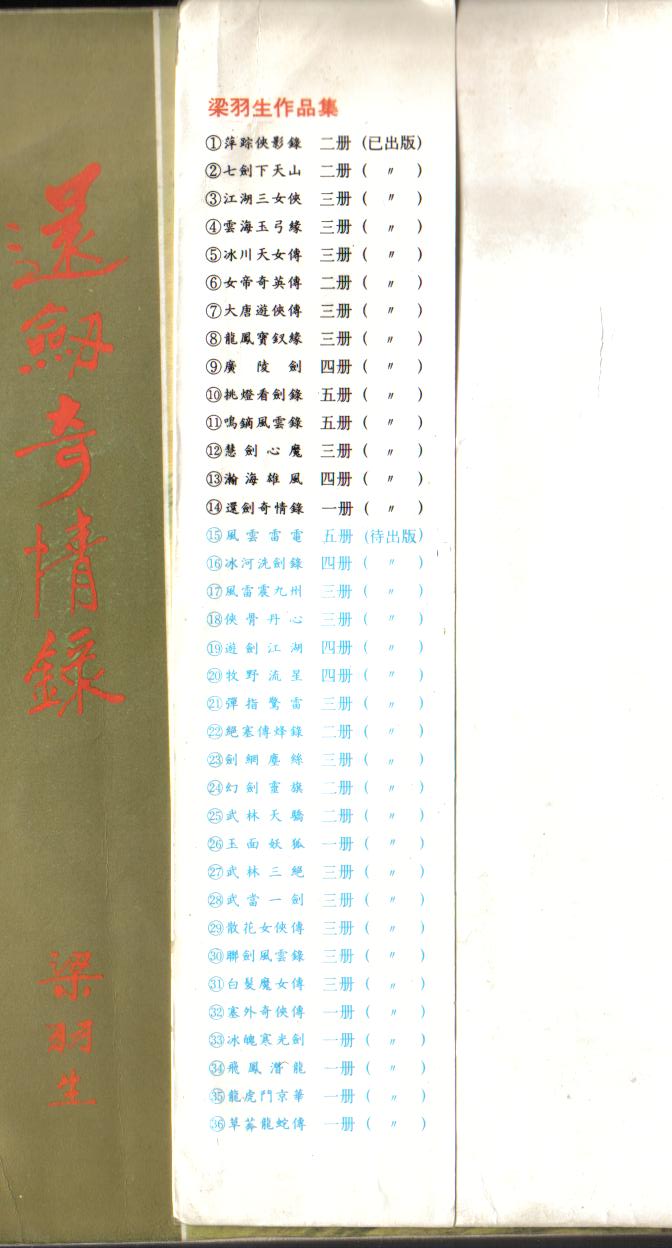 還劍奇情錄
梁羽生
梁羽生作品集
①萍踪俠影錄 二册 (已出版)
②七劍下天山 二册 ( 〃 )
③江湖三女俠 三册 ( 〃 )
④雲海玉弓緣 三册 ( 〃 )
⑤冰川天女傳 三册 ( 〃 )
⑥女帝奇英傳 二册 ( 〃 )
⑦大唐遊俠傳 三册 ( 〃 )
⑧龍鳳寶釵緣 三册 ( 〃 )
⑨廣陵劍 四册 ( 〃 )
⑩挑燈看劍錄 五册 ( 〃 )
⑪鳴鏑風雲錄 五册 ( 〃 )
⑫慧劍心魔 三册 ( 〃 )
⑬瀚海雄風 四册 ( 〃 )
⑭還劍奇情錄 一册 ( 〃 )
⑮風雲雷電 五册 (待出版)
⑯冰河洗劍錄 四册 ( 〃 )
⑰風雷震九州 三册 ( 〃 )
⑱俠骨丹心 三册 ( 〃 )
⑲遊劍江湖 四册 ( 〃 )
⑳牧野流星 四册 ( 〃 )
㉑彈指驚雷 三册 ( 〃 )
㉒絕塞傳烽錄 二册 ( 〃 )
㉓劍網塵絲 三册 ( 〃 )
㉔幻劍靈旗 二册 ( 〃 )
㉕武林天驕 二册 ( 〃 )
㉖玉面妖狐 一册 ( 〃 )
㉗武林三絕 三册 ( 〃 )
㉘武當一劍 三册 ( 〃 )
㉙散花女俠傳 三册 ( 〃 )
㉚聯劍風雲錄 三册 ( 〃 )
㉛白髮魔女傳 三册 ( 〃 )
㉜塞外奇俠傳 一册 ( 〃 )
㉝冰魄寒光劍 一册 ( 〃 )
㉞飛鳳潛龍 一册 ( 〃 )
㉟龍虎鬥京華 一册 ( 〃 )
㊱草莽龍蛇傳 一册 ( 〃 )